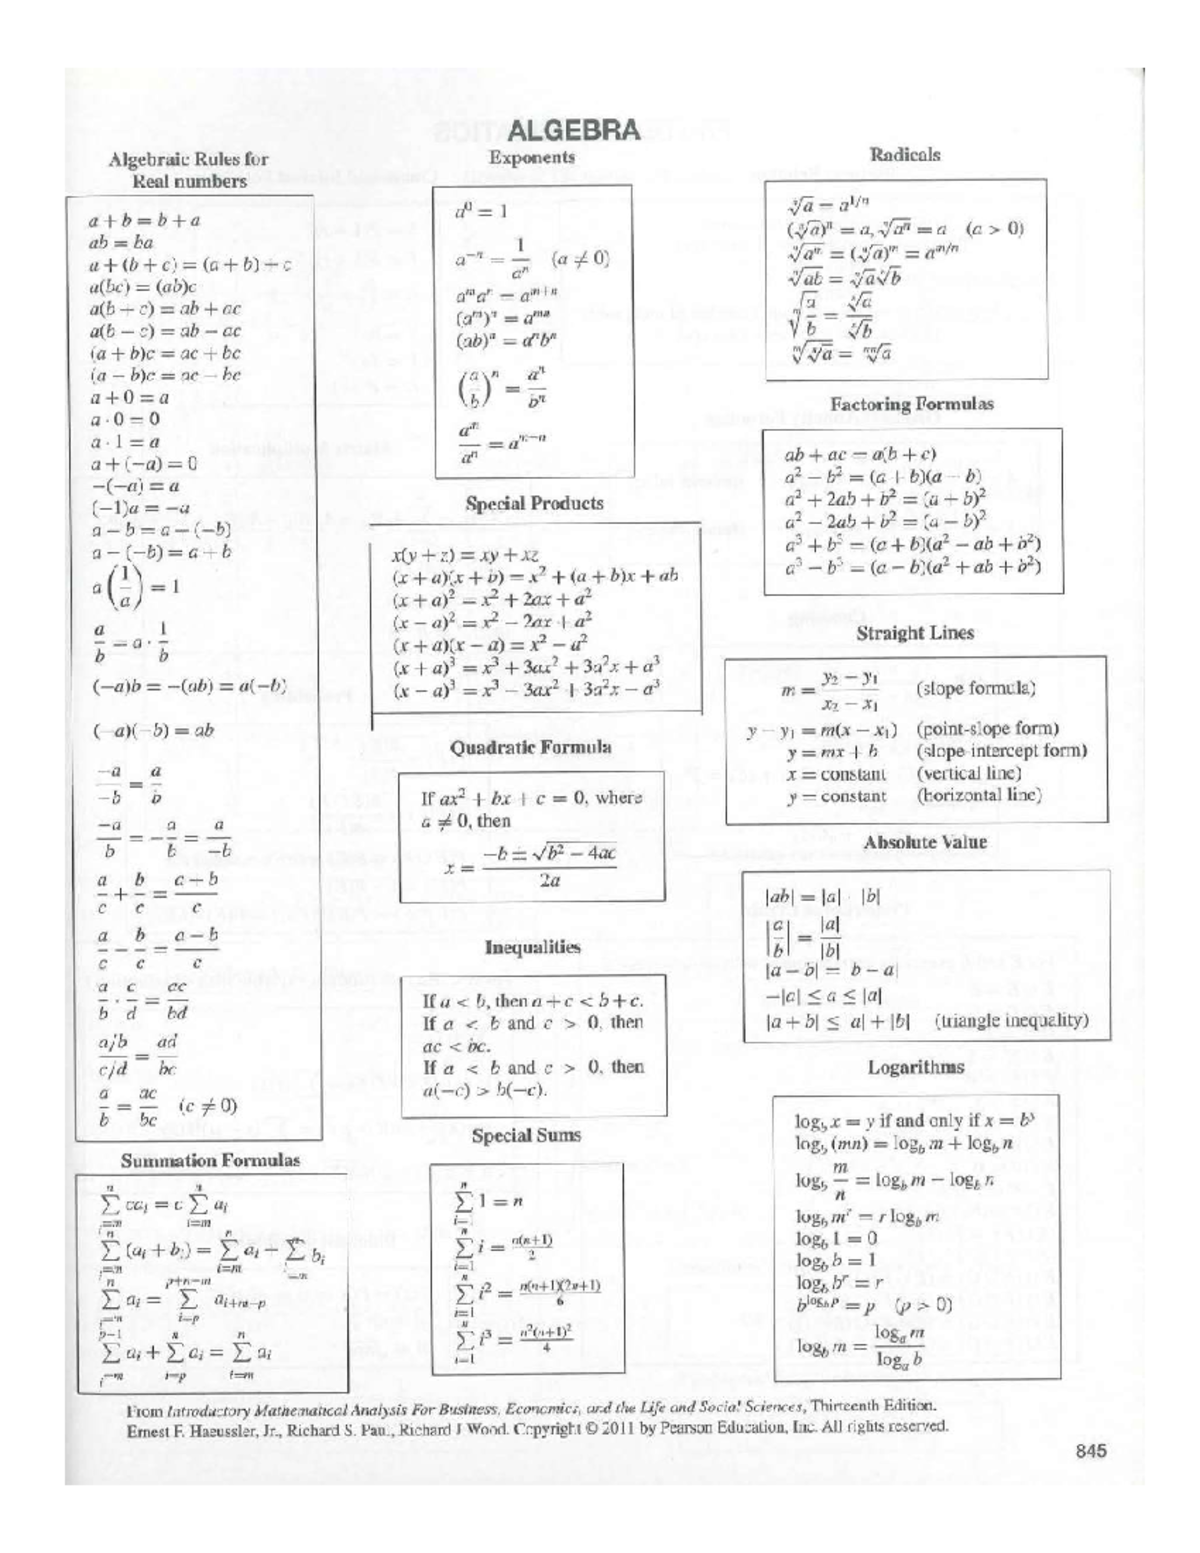 ALGEBRA
Algebraic Rules for
Real numbers
a + b = b + a
ab = ba
a + (b + c) = (a + b) + c
a(bc) = (ab)c
a(b + c) = ab + ac
a(b − c) = ab − ac
(a + b)c = ac + bc
(a − b)c = ac − bc
a + 0 = a
a · 0 = 0
a · 1 = a
a + (−a) = 0
−(−a) = a
(−1)a = −a
a − b = a + (−b)
a − (−b) = a + b
a(1/a) = 1
a/b = a · 1/b
(−a)b = −(ab) = a(−b)
(−a)(−b) = ab
−a/−b = a/b
−a/b = −a/b = a/−b
a/c + b/c = (a + b)/c
a/c − b/c = (a − b)/c
a/b · c/d = ac/bd
(a/b)/(c/d) = ad/bc
a/b = ac/bc (c ≠ 0)
Summation Formulas
∑_{i=m}^{n} ca_i = c ∑_{i=m}^{n} a_i
∑_{i=m}^{n} (a_i + b_i) = ∑_{i=m}^{n} a_i + ∑_{i=m}^{n} b_i
∑_{i=m}^{n} a_i = ∑_{i=p}^{p+n−m} a_{i+m−p}
∑_{i=m}^{p−1} a_i + ∑_{i=p}^{n} a_i = ∑_{i=m}^{n} a_i
Exponents
a⁰ = 1
a⁻ⁿ = 1/aⁿ (a ≠ 0)
a^m a^n = a^{m+n}
(a^m)^n = a^{mn}
(ab)^n = a^n b^n
(a/b)^n = a^n/b^n
a^m/a^n = a^{m−n}
Special Products
x(y + z) = xy + xz
(x + a)(x + b) = x² + (a + b)x + ab
(x + a)² = x² + 2ax + a²
(x − a)² = x² − 2ax + a²
(x + a)(x − a) = x² − a²
(x + a)³ = x³ + 3ax² + 3a²x + a³
(x − a)³ = x³ − 3ax² + 3a²x − a³
Quadratic Formula
If ax² + bx + c = 0, where
a ≠ 0, then
x = (−b ± √(b² − 4ac))/2a
Inequalities
If a < b, then a + c < b + c.
If a < b and c > 0, then
ac < bc.
If a < b and c > 0, then
a(−c) > b(−c).
Special Sums
∑_{i=1}^{n} 1 = n
∑_{i=1}^{n} i = n(n+1)/2
∑_{i=1}^{n} i² = n(n+1)(2n+1)/6
∑_{i=1}^{n} i³ = n²(n+1)²/4
Radicals
ⁿ√a = a^{1/n}
(ⁿ√a)ⁿ = a, ⁿ√aⁿ = a (a > 0)
ⁿ√a^m = (ⁿ√a)^m = a^{m/n}
ⁿ√ab = ⁿ√a ⁿ√b
ⁿ√(a/b) = ⁿ√a/ⁿ√b
ᵐ√ⁿ√a = ᵐⁿ√a
Factoring Formulas
ab + ac = a(b + c)
a² − b² = (a + b)(a − b)
a² + 2ab + b² = (a + b)²
a² − 2ab + b² = (a − b)²
a³ + b³ = (a + b)(a² − ab + b²)
a³ − b³ = (a − b)(a² + ab + b²)
Straight Lines
m = (y₂ − y₁)/(x₂ − x₁) (slope formula)
y − y₁ = m(x − x₁) (point-slope form)
y = mx + b (slope-intercept form)
x = constant (vertical line)
y = constant (horizontal line)
Absolute Value
|ab| = |a| · |b|
|a/b| = |a|/|b|
|a − b| = |b − a|
−|a| ≤ a ≤ |a|
|a + b| ≤ |a| + |b| (triangle inequality)
Logarithms
log_b x = y if and only if x = b^y
log_b (mn) = log_b m + log_b n
log_b m/n = log_b m − log_b n
log_b m^r = r log_b m
log_b 1 = 0
log_b b = 1
log_b b^r = r
b^{log_b p} = p (p > 0)
log_b m = log_a m/log_a b
From Introductory Mathematical Analysis For Business, Economics, and the Life and Social Sciences, Thirteenth Edition.
Ernest F. Haeussler, Jr., Richard S. Paul, Richard J Wood. Copyright © 2011 by Pearson Education, Inc. All rights reserved.
845